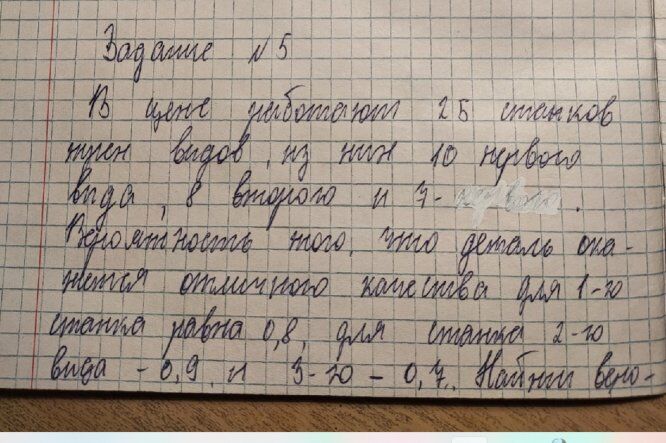 Задание № 5
В цехе работают 25 станков
трех видов, из них 10 первого
вида, 8 второго и 7-
Вероятность того, что деталь ока-
жется отличного качества для 1-го
станка равна 0,8, для станка 2-го
вида - 0,9, и 3-го - 0,7. Найти веро-